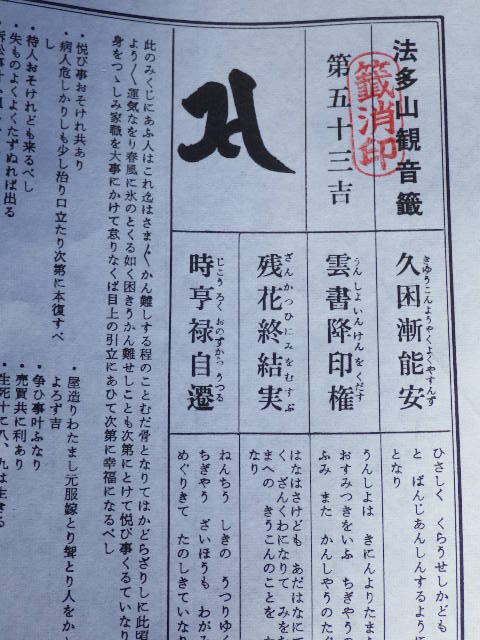 法多山観音籤
籤消印
第五十三吉
久困漸能安
きゆうこんようやくよくやすんず
雲書降印権
うんしよいんけんをくだす
残花終結実
ざんかつひにみをむすぶ
時亨禄自遷
じこうろくおのずからうつる
ひさしく くらうせしかども
と ぼんじあんしんするように
となり
うんしよは きにんよりたま
おすみつきをいふ ちぎやうの
ふみ また かんしやうのた
はなはさけども あだはなにて
く ざんくわになりて みを
まへの きうこんのことを
なり
ねんちう しきの うつりゆく
ちぎやう ざいほうも わがみ
めぐりきて たのしきていなり
此のみくじにあふ人はこれ迄はさま〴〵かん難しする程のことむだ骨となりてはかどらざりしに此頃
よう〳〵運気なをり春風に氷のとくる如く困きうかん難せしことも次第にとけて悦び事くるていなり
身をつゝしみ家職を大事にかけて怠りなくば目上の引立にあひて次第に幸福になるべし
・悦び事おそけれ共あり
・病人危しかりしも少し治り口立たり次第に本復すべ
し
・待人おそけれども来るべし
・失ものよくよくたずぬれば出る
・屋造りわたまし元服嫁とり聟とり人をか
よろず吉
・争ひ事叶ふなり
・売買共に利あり
・生死十に八、九は生きる